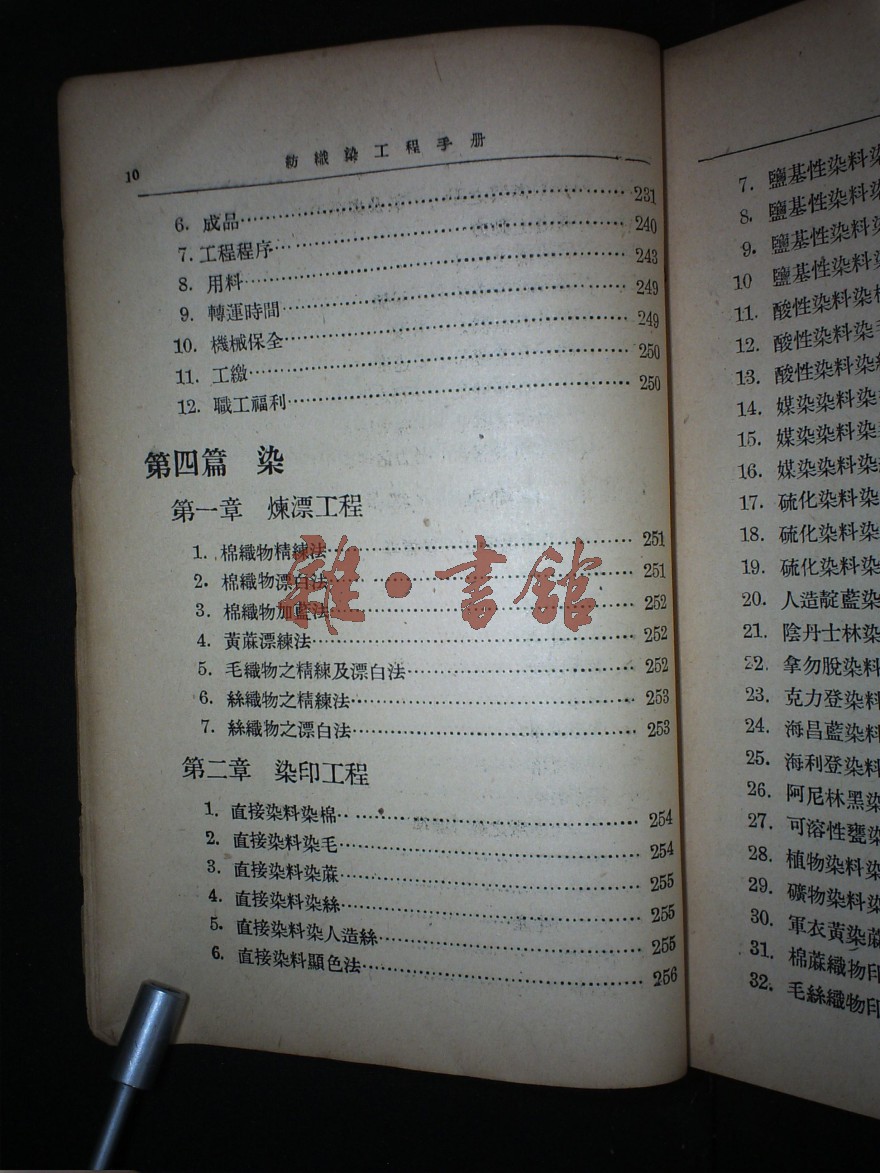 10 紡織染工程手册
6. 成品 231
7. 工程程序 240
8. 用料 243
9. 轉運時間 249
10. 機械保全 249
11. 工繳 250
12. 職工福利 250
第四篇 染
第一章 煉漂工程
1. 棉織物精練法 251
2. 棉織物漂白法 251
3. 棉織物加藍法 252
4. 黃蔴漂練法 252
5. 毛織物之精練及漂白法 252
6. 絲織物之精練法 253
7. 絲織物之漂白法 253
雜·書館
第二章 染印工程
1. 直接染料染棉 254
2. 直接染料染毛 254
3. 直接染料染蔴 255
4. 直接染料染絲 255
5. 直接染料染人造絲 255
6. 直接染料顯色法 256
7. 鹽基性染料染
8. 鹽基性染料染
9. 鹽基性染料
10 鹽基性染料
11. 酸性染料染
12. 酸性染料染
13. 酸性染料染
14. 媒染染料染
15. 媒染染料染
16. 媒染染料染
17. 硫化染料染
18. 硫化染料染
19. 硫化染料染
20. 人造靛藍染
21. 陰丹士林染
22. 拿勿脫染料
23. 克力登染料
24. 海昌藍染料
25. 海利登染料
26. 阿尼林黑染
27. 可溶性甕染
28. 植物染料染
29. 礦物染料染
30. 軍衣黃染蔴
31. 棉蔴織物印
32. 毛絲織物印